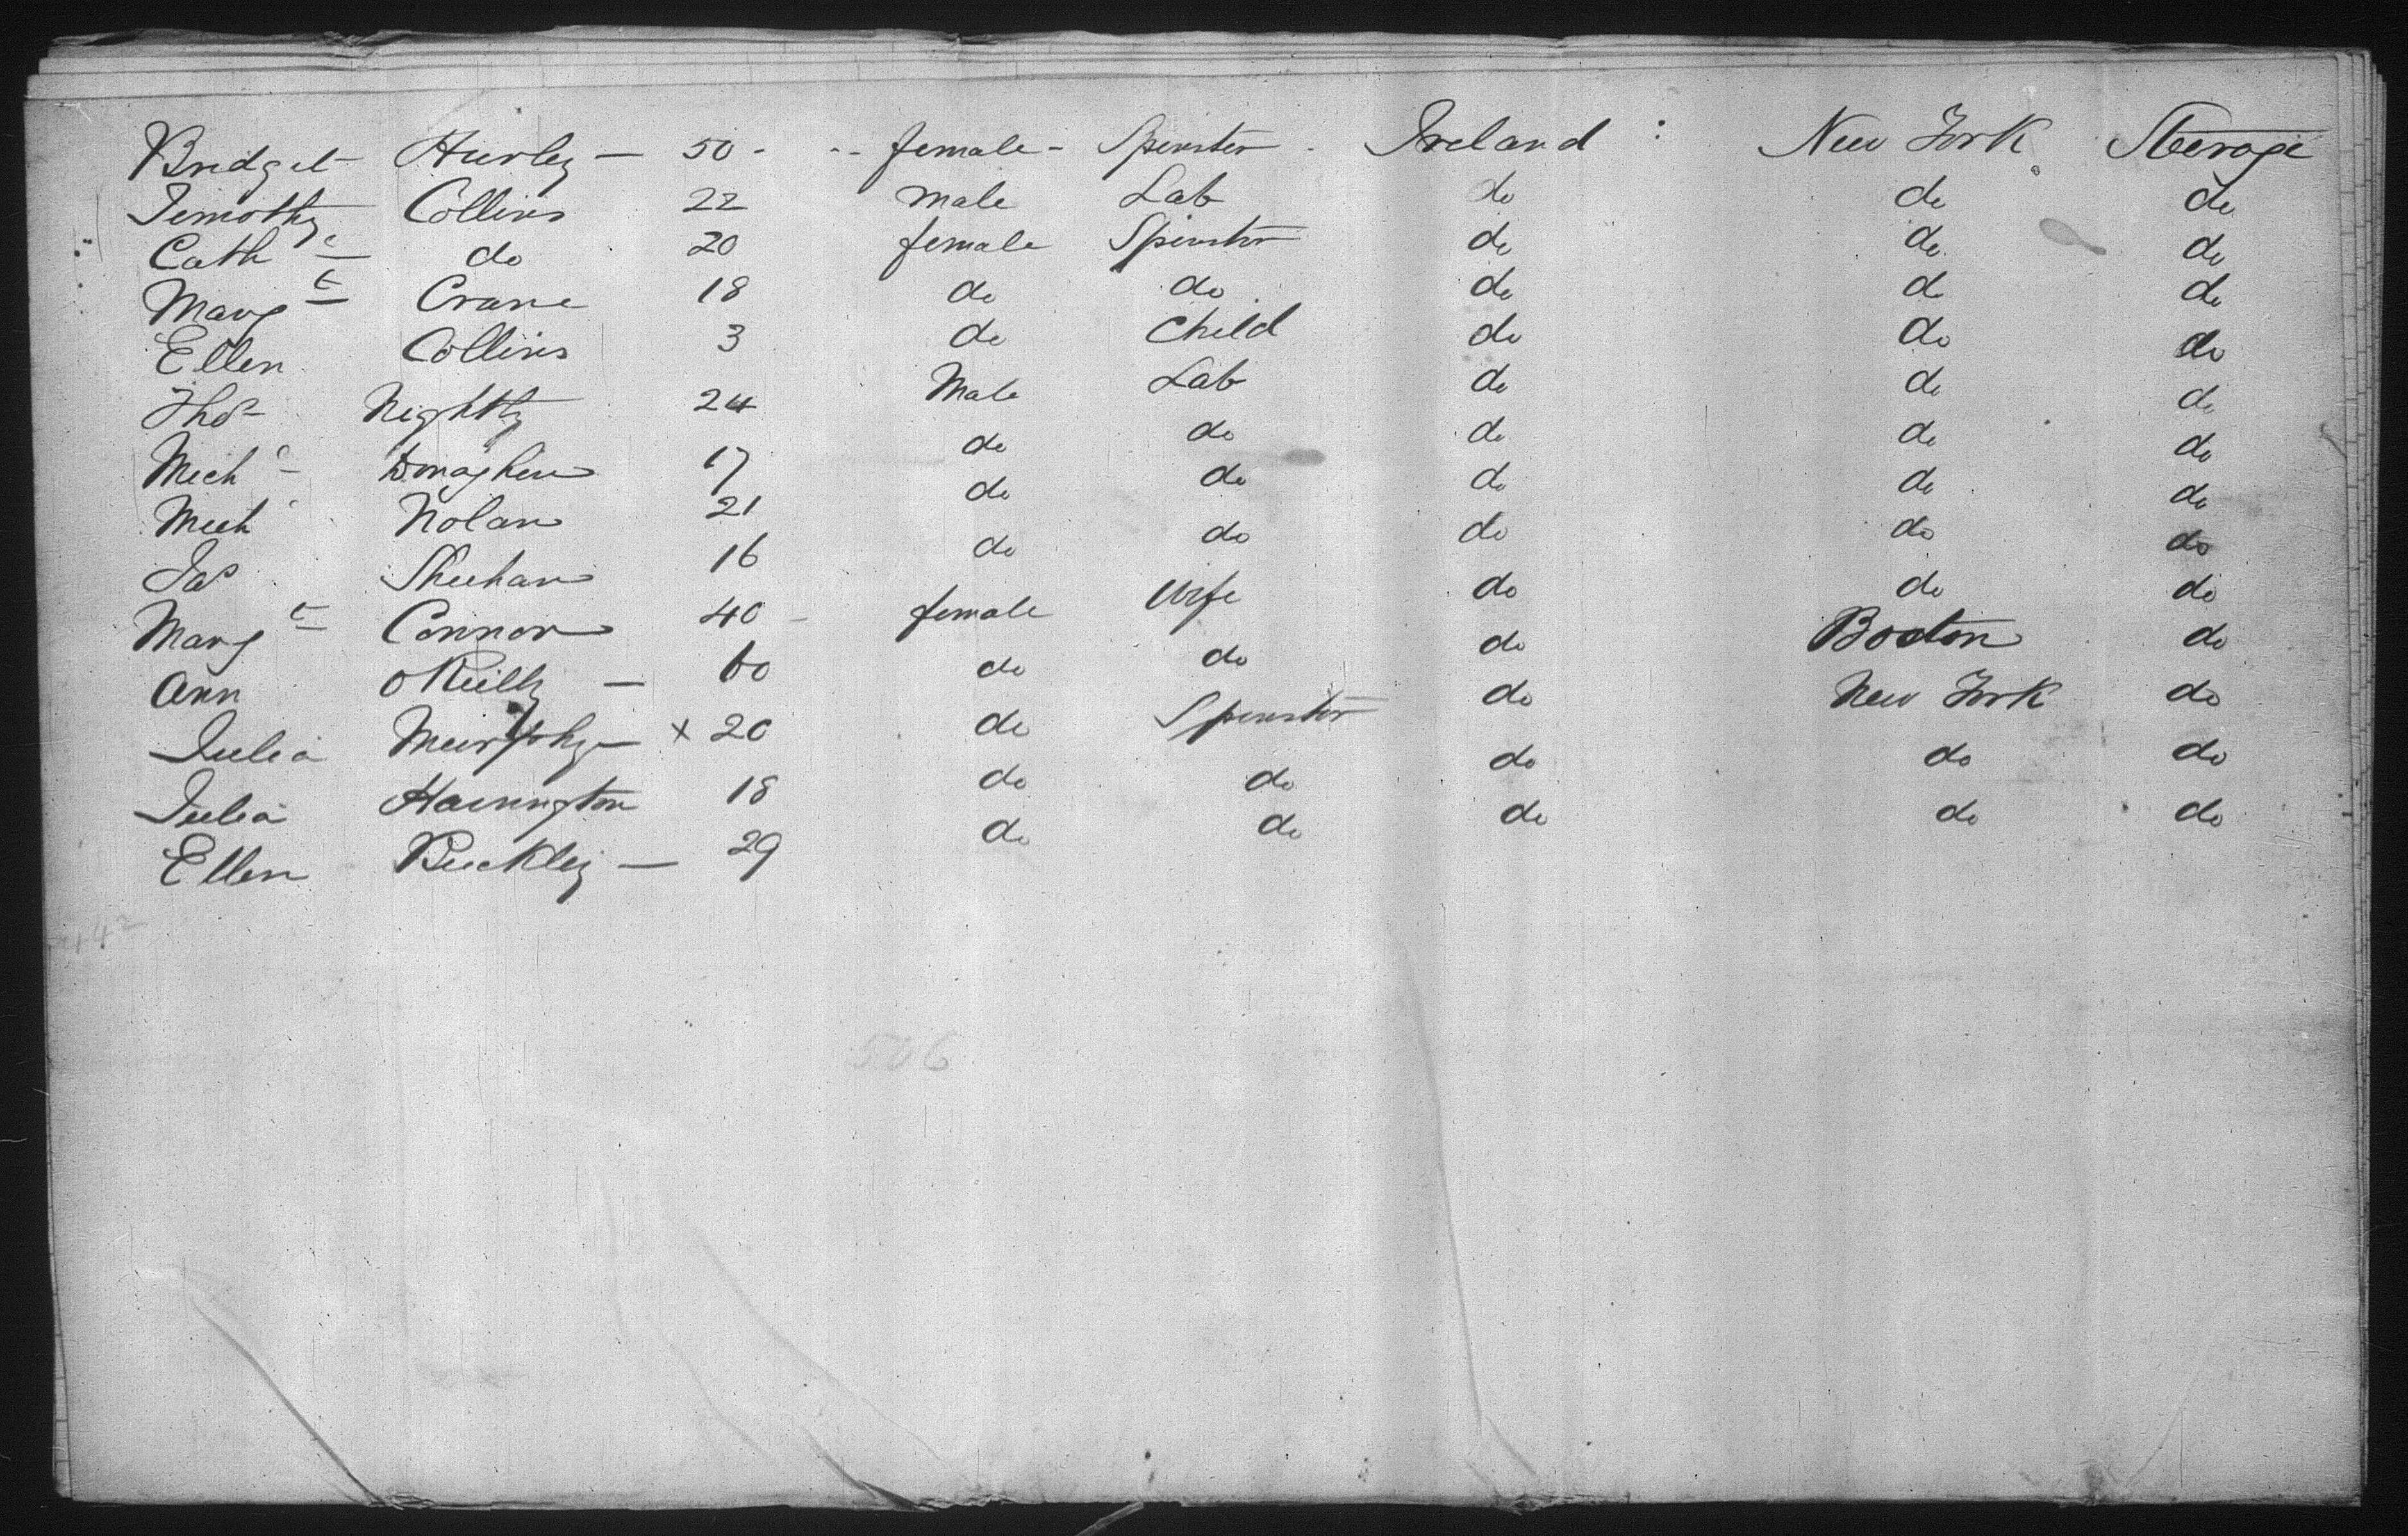 Bridget Hurley — 50 - -- female - Spinster - Ireland : New York Sterage
Timothy Collins 22 Male Lab do do do
Cath e do 20 female Spinster do do do
Marg t Crane 18 do do do do do
Ellen Collins 3 do Child do do do
Thos Nightly 24 Male Lab do do do
Mich l Donaghue 17 do do do do do
Mich l Nolan 21 do do do do do
Jas Sheehan 16 do do do do do
Marg t Connor 40 - female Wife do do do
Ann O Reilly — 60 do do do Boston do
Julia Murphy — x 20 do Spinster do New York do
Julia Harrington 18 do do do do do
Ellen Buckley — 29 do do do do do
142
506